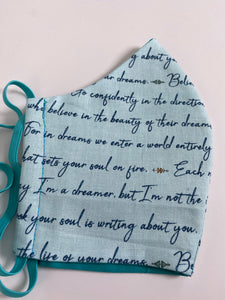 g about you
ur dreams. Belie
to confidently in the direction
who believe in the beauty of their dreams
For in dreams we enter a world entirely
that sets your soul on fire. Each n
I'm a dreamer, but I'm not the
your soul is writing about you.
the life of your dreams. Be